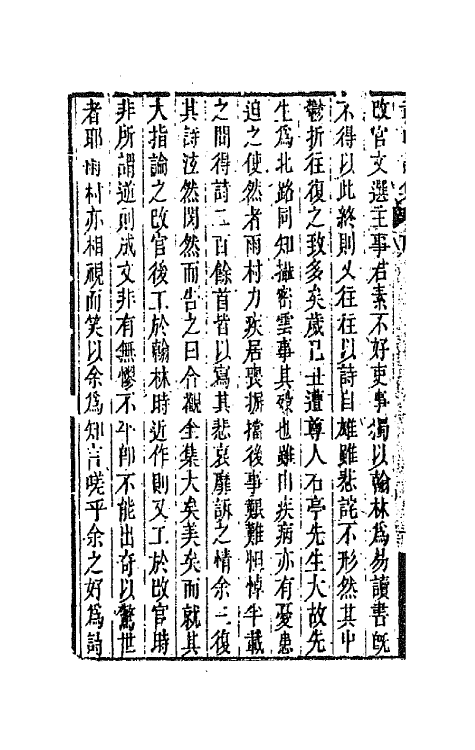 改官文選主事君素不好吏事獨以翰林爲易讀書既
不得以此終則又往往以詩自雄雖悲詫不形然其中
鬱折往復之致多矣歲己丑遭尊人石亭先生大故先
生爲北路同知攝密雲事其歿也雖由疾病亦有憂患
迫之使然者雨村力疾居喪摒擋後事艱難怛悼半載
之間得詩二百餘首皆以寫其悲哀靡訴之情余三復
其詩泫然閔然而告之曰合觀全集大矣美矣而就其
大指論之改官後工於翰林時近作則又工於改官時
非所謂逆則成文非有無憀不平卽不能出奇以驚世
者耶雨村亦相視而笑以余爲知言嗟乎余之好爲詩